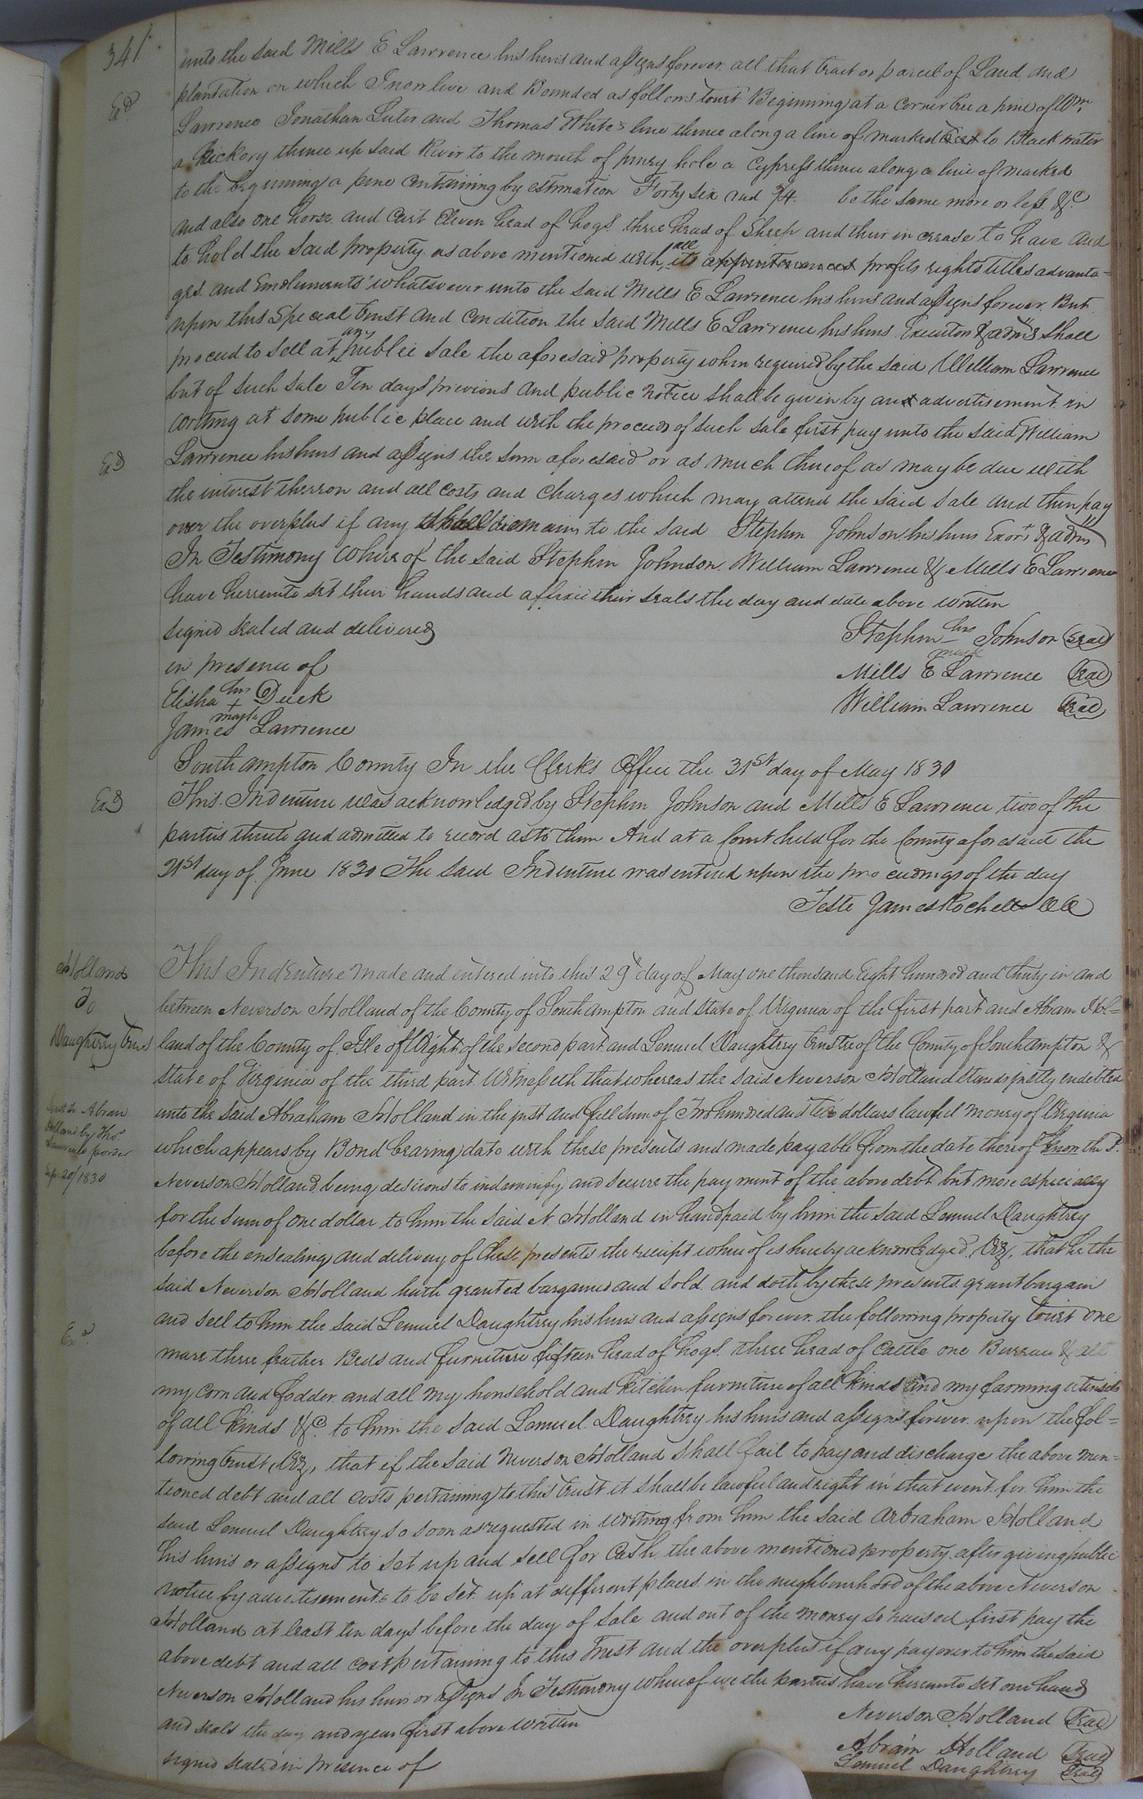 341
unto the said Mills E Lawrence his heirs and assigns forever all that tract or parcel of Land and
plantation on which I now live and Bounded as follows towit Beginning at a corner tree a pine of Wm
Exd
Lawrence Jonathan Luter and Thomas White's line thence along a line of marked trees to Black water
a Hickory thence up said River to the mouth of piney hole a Cypress thence along a line of marked
to the beginning a pine Containing by estimation Forty six and 3/4 be the same more or less &c
and also one horse and Cart Eleven head of hogs three head of Sheep and their increase to have and
to hold the said property as above mentioned with all its appurtenances profits rights titles advanta=
ges and Emoluments whatsoever unto the said Mills E Lawrence his heirs and assigns forever But
upon this Special trust and Condition the said Mills E Lawrence his heirs Executors & adms shall
proceed to sell at any public sale the aforesaid property when required by the said William Lawrence
but of such sale Ten days previous and public notice shall be given by an advertisement in
writing at some public place and with the proceeds of such sale first pay unto the said William
Exd
Lawrence his heirs and assigns the sum aforesaid or as much thereof as may be due with
the interest thereon and all costs and charges which may attend the said sale and then pay
over the overplus if any shall remain to the said Stephen Johnson his heirs Exors & adms
In Testimony whereof the said Stephen Johnson William Lawrence & Mills E Lawrence
have hereunto set their hands and affixed their seals the day and date above written
signed sealed and delivered
in presence of
Elisha his + mark Duck
James Lawrence
Stephen his mark Johnson (Seal)
Mills E Lawrence (Seal)
William Lawrence (Seal)
Southampton County In the Clerks Office the 31st day of May 1830
Exd
This Indenture was acknowledged by Stephen Johnson and Mills E Lawrence two of the
parties thereto and admitted to record as to them And at a Court held for the County aforesaid the
21st day of June 1830 The said Indenture was entered upon the proceedings of the day
Teste James Rochelle CC
Holland
To
Daughtrey Trust
This Indenture made and entered into this 29th day of May one thousand Eight hundred and thirty in and
between Neverson Holland of the County of Southampton and State of Virginia of the first part and Abram Hol=
land of the County of Isle of Wight of the second part and Lemuel Daughtrey trustee of the County of Southampton &
state of Virginia of the third part Witnesseth that whereas the said Neverson Holland stands justly indebted
Abram
Holland by Thos
order
Sep 20th 1830
unto the said Abraham Holland in the just and full sum of Two hundred and two dollars lawful money of Virginia
which appears by Bond bearing date with these presents and made payable from the date thereof the sd
Neverson Holland being desirous to indemnify and secure the payment of the above debt but more especially
for the sum of one dollar to him the said N Holland in hand paid by him the said Lemuel Daughtrey
before the ensealing and delivery of these presents the receipt whereof is hereby acknowledged, Viz, that he the
said Neverson Holland hath granted bargained and sold and doth by these presents grant bargain
and sell to him the said Lemuel Daughtrey his heirs and assigns forever the following property towit one
Exd
mare three feather Beds and furniture fifteen head of hogs three head of Cattle one Bureau & all
my corn and fodder and all my household and kitchen furniture of all kinds and my farming utensils
of all kinds &c to him the said Lemuel Daughtrey his heirs and assigns forever upon the fol=
lowing trust, Viz, that if the said Neverson Holland shall fail to pay and discharge the above men=
tioned debt and all costs pertaining to this trust it shall be lawful and right in that event for him the
said Lemuel Daughtrey so soon as requested in writing from him the said Arbraham Holland
his heirs or assigns to set up and sell for Cash the above mentioned property after giving public
notice by advertisements to be set up at different places in the neighbourhood of the above Neverson
Holland at least ten days before the day of sale and out of the money so raised first pay the
above debt and all cost pertaining to this Trust and the overplus if any pay over to him the said
Neverson Holland his heirs or assigns In Testimony whereof we the parties have hereunto set our hands
and seals the day and year first above written
signed sealed in presence of
Neverson Holland (Seal)
Abram Holland (Seal)
Lemuel Daughtrey (Seal)